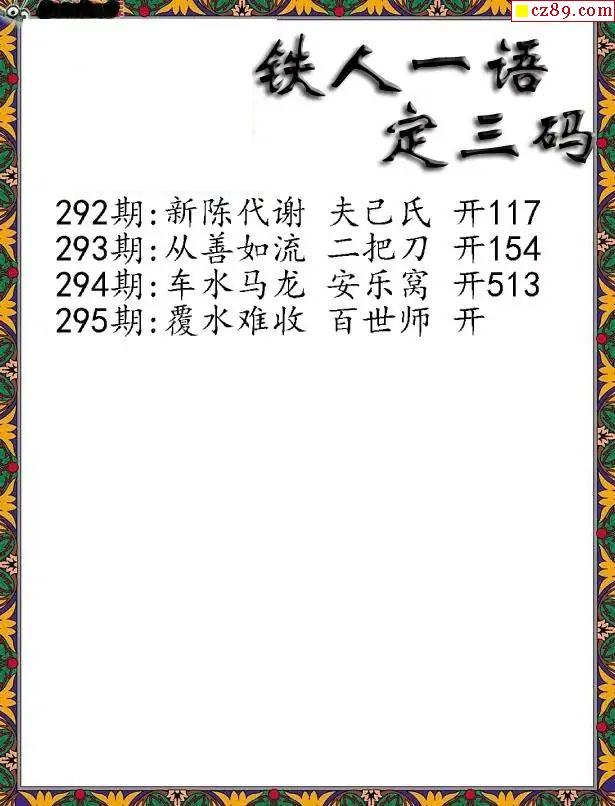 cz89.com
铁人一语
定三码
292期:新陈代谢 夫己氏 开117
293期:从善如流 二把刀 开154
294期:车水马龙 安乐窝 开513
295期:覆水难收 百世师 开